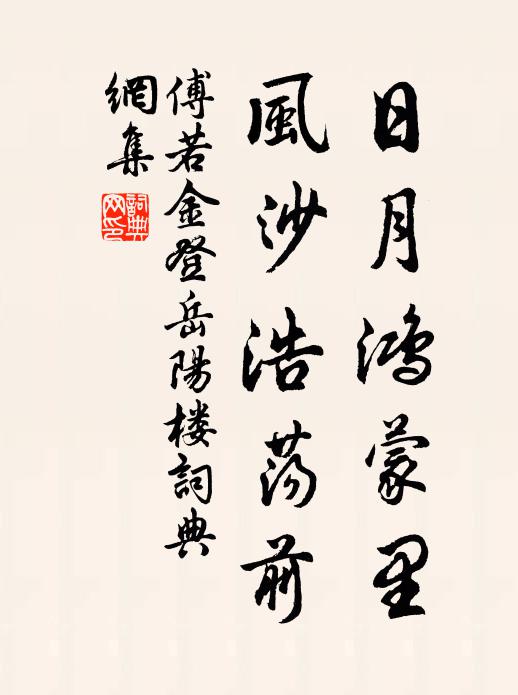 日月鸿蒙里
風沙浩荡前
傅若金登岳陽楼詞典
網集
詞典网印